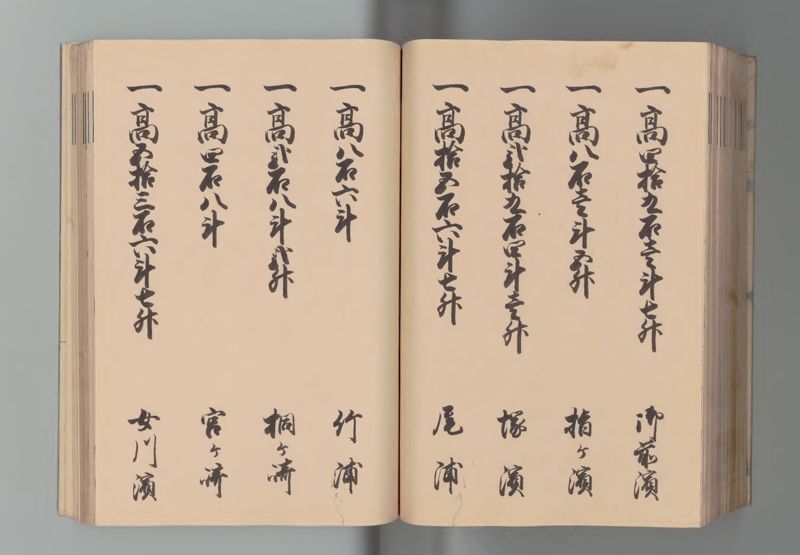 一高四拾九石壱斗七升 御前濱
一高八石壱斗五升 指ヶ濱
一高弐拾九石四斗壱升 塚濱
一高拾五石六斗七升 尾浦
一高八石六斗 竹浦
一高弐石八斗弐升 桐ヶ崎
一高四石八斗 宮ヶ崎
一高五拾三石六斗七升 女川濱